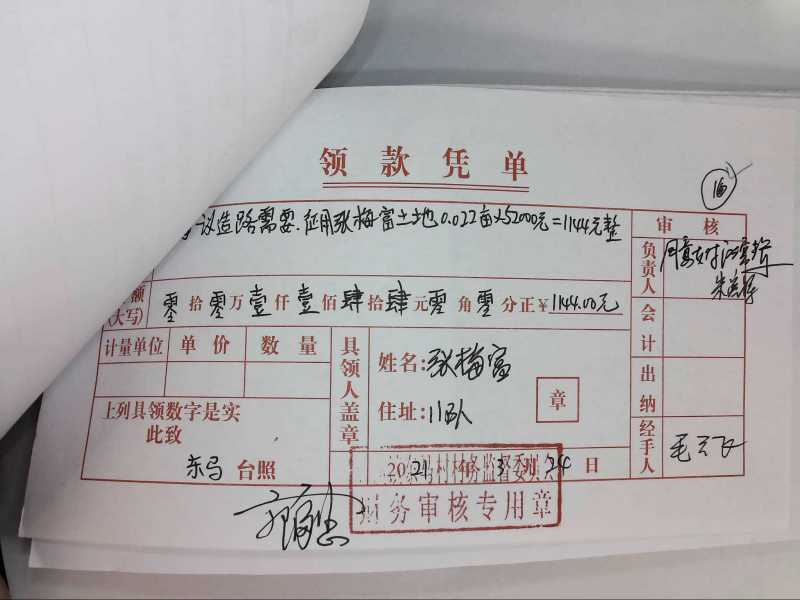 领款凭单
16
议造路需要.征用张梅富土地0.022亩×52000元=1144元整
审核
负责人
同意支付
额(大写) 零拾零万壹仟壹佰肆拾肆元零角零分正¥1144.00元
会计
计量单位 单价 数量
具领人盖章
姓名:张梅富
章
住址:11队
出纳
上列具领数字是实
此致
东马台照
2021年3月24日
经手人
毛云飞
村村务监督委员
财务审核专用章